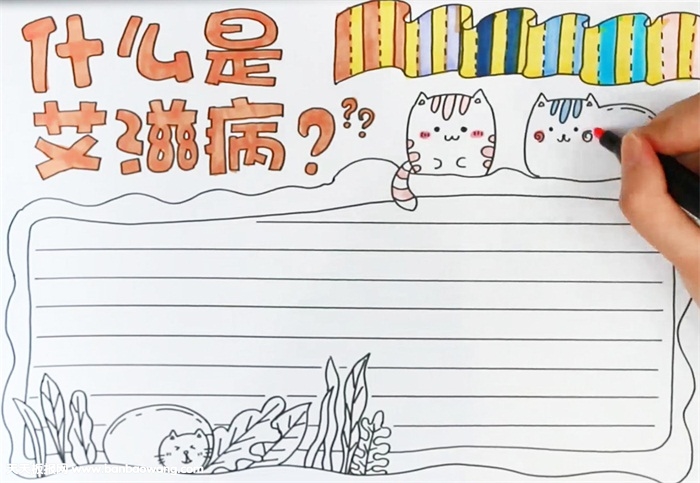 什么是
艾滋病?
???